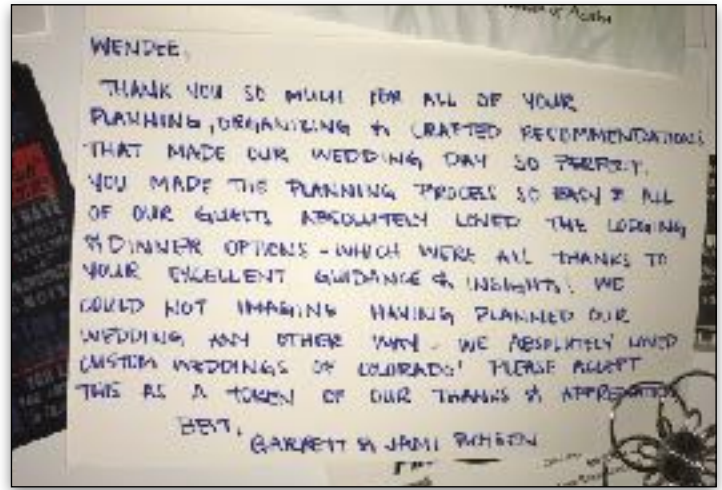 WENDEE,
THANK YOU SO MUCH FOR ALL OF YOUR
PLANNING, ORGANIZING & CRAFTED RECOMMENDATIONS
THAT MADE OUR WEDDING DAY SO PERFECT.
YOU MADE THE PLANNING PROCESS SO EASY & ALL
OF OUR GUESTS ABSOLUTELY LOVED THE LODGING
& DINNER OPTIONS - WHICH WERE ALL THANKS TO
YOUR EXCELLENT GUIDANCE & INSIGHTS. WE
COULD NOT IMAGINE HAVING PLANNED OUR
WEDDING ANY OTHER WAY - WE ABSOLUTELY LOVED
CUSTOM WEDDINGS OF COLORADO! PLEASE ACCEPT
THIS AS A TOKEN OF OUR THANKS & APPRECIATION
BEST,
GARRETT & JAMI